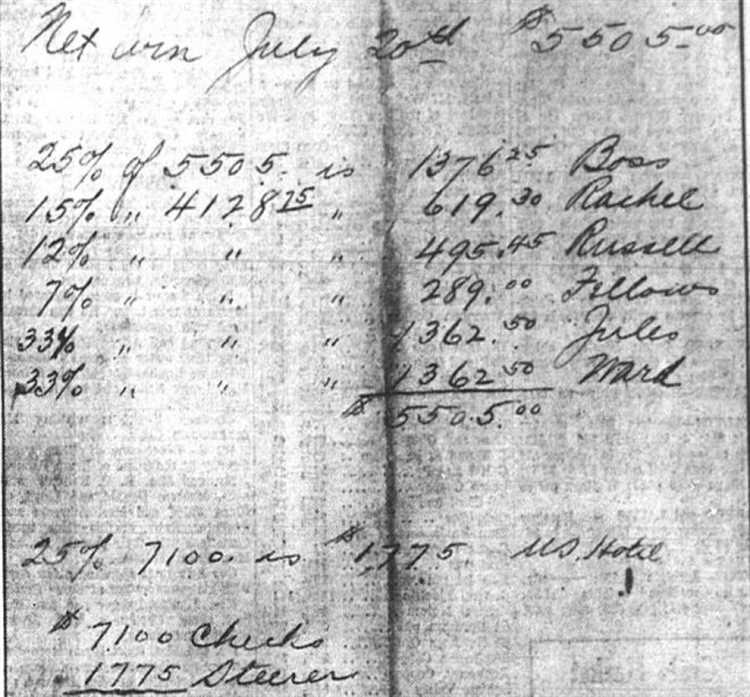 Net win July 20th $5505.00
25% of 5505. is 1376.25 Boss
15% " 4128 75 " 619.30 Rachel
12% " " " 495.45 Russell
7% " " " 289.00 Fellows
33% " " " 1362.50 Jules
33% " " " 1362 50 Ward
$ 5505.00
25% 7100. is $1,775 US. Hotel
$ 7100 Checks
1775 Steerer